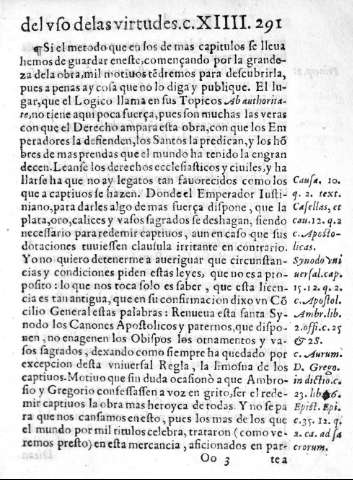 del vso delas virtudes.c.XIIII. 291
¶Si el metodo que en los de mas capitulos se lleua
hemos de guardar eneste, començando por la grande-
za dela obra, mil motiuos tẽdremos para descubrirla,
pues a penas ay cosa que no lo diga y publique. El lu-
gar, que el Logico llama en sus Topicos Ab authorita-
te, no tiene aqui poca fuerça, pues son muchas las veras
con que el Derecho ampara esta obra, con que los Em
peradores la defienden, los Santos la predican, y los hõ
bres de mas prendas que el mundo ha tenido la engran
decen. Leanse los derechos ecclesiasticos y ciuiles, y ha
llarse ha que no ay legatos tan fauorecidos como los
que a captiuos se hazen. Donde el Emperador Iusti-
niano, para darles algo de mas fuerça dispone, que la
plata, oro, calices y vasos sagrados se deshagan, siendo
necessario para redemir captiuos, aun en caso que sus
dotaciones tuuiessen clausula irritante en contrario.
Y o no quiero detenerme a aueriguar que circunstan-
cias y condiciones piden estas leyes, que no es a pro-
posito: lo que nos toca solo es saber, que esta licen-
cia es tan antigua, que en su confirmacion dixo vn Cõ
cilio General estas palabras: Renueua esta santa Sy-
nodo los Canones Apostolicos y paternos, que dispo-
nen, no enagenen los Obispos los ornamentos y va-
sos sagrados, dexando como siempre ha quedado por
excepcion desta vniuersal Regla, la limosna de los
captiuos. Motiuo que sin duda ocasionò a que Ambro-
sio y Gregorio confessassen a voz en grito, ser el rede-
mir captiuos la obra mas heroyca de todas. Y no se pa
ra que nos cansamos en esto, pues los mas de los que
el mundo por mil titulos celebra, trataron (como ve-
remos presto) en esta mercancia, aficionados en par-
Oo 3 tea
Causa. 10.
q. 2. text.
Casellas, et
cau. 12. q. 2
c. Aposto-
licas.
Synodo vni
uersal. cap.
15. 12. q. 2.
c. Apostol.
Ambr. lib.
2. offi. c. 25
& 28.
c. Aurum.
D. Grego.
in dictio. c.
23. lib. 6.
Epist. Epi.
c. 35. 12. q.
2. ca. ad sa
crorum.